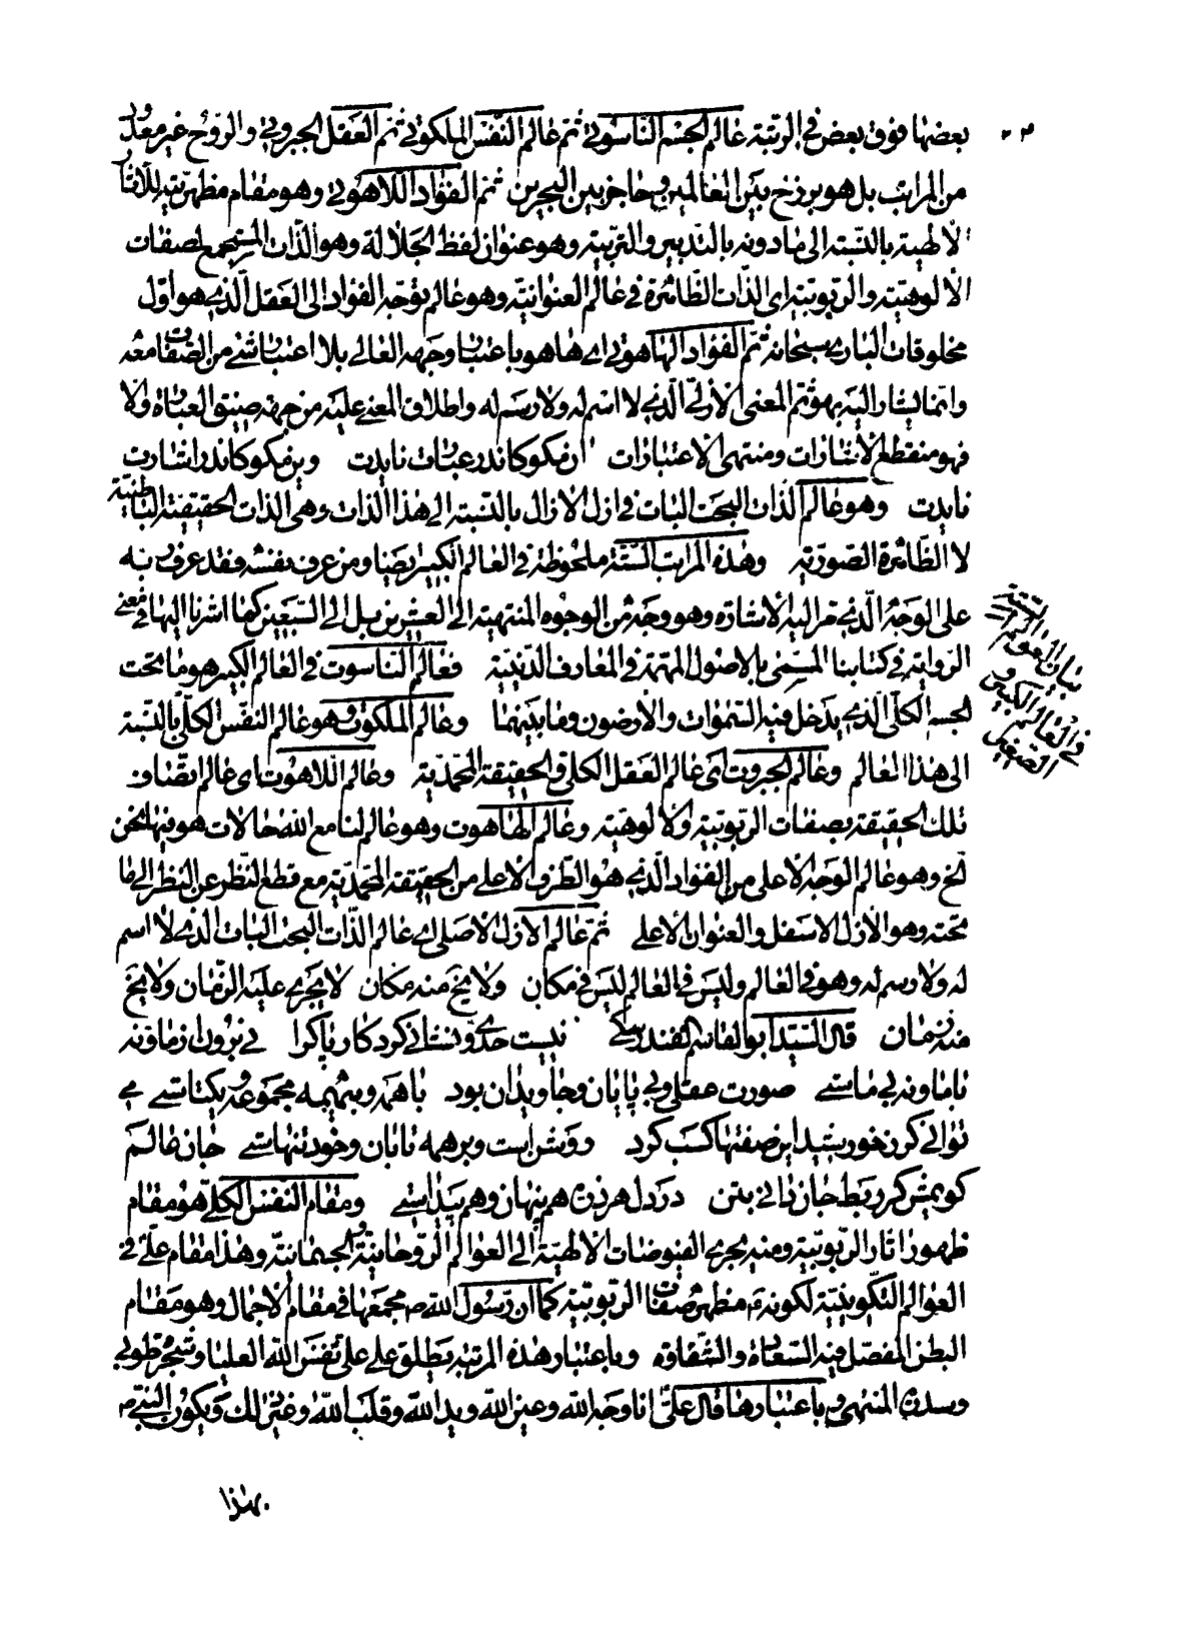 بعضها فوق بعض في الرتبة عالم الجسم الناسوتي ثم عالم النفس الملكوتي ثم العقل الجبروتي والروح غير معدود
من المراتب بل هو برزخ بين العالمين وحاجز بين البحرين ثم الفؤاد اللاهوتي وهو مقام مظهريته للآثار
الالهية بالنسبة الى ما دونه بالتدبير والتربية وهو عنوان لفظ الجلالة وهو الذات المستجمع لصفات
الالوهية والربوبية اي الذات الظاهرة في عالم العنوانية وهو عالم توجه الفؤاد الى العقل الذي هو اول
مخلوقات الباري سبحانه ثم الفؤاد الهاهوتي اي ها هو باعتبار وجهه العالي بلا اعتبار شئ من الصفات معه
وانما يشار اليه بهو ثم المعنى الازلي الذي لا اسم له ولا رسم له واطلاق المعنى عليه من جهة ضيق العبارة والا
فهو منقطع الاشارات ومنتهى الاعتبارات آن مگو كاندر عبارات نايدت وين مگو كاندر اشارت
نايدت وهو عالم الذات البحت البات في ازل الازال بالنسبة الى هذا الذات وهي الذات الحقيقية الباطنية
لا الظاهرة الصورية وهذه المراتب الستة ملحوظة في العالم الكبير ايضا ومن عرف نفسه فقد عرف ربه
على الوجه الذي مر اليه الاشارة وهو وجه من الوجوه المنتهية الى العشرين بل الى السبعين كما اشرنا اليها في معنى
الرواية في كتابنا المسمى بالاصول المهمة في المعارف الدينية فعالم الناسوت في العالم الكبير هو ما تحت
الجسم الكلي الذي يدخل فيه السموات والارضون وما بينهما وعالم الملكوت هو عالم النفس الكلي بالنسبة
الى هذا العالم وعالم الجبروت اي عالم العقل الكلي والحقيقة المحمدية وعالم اللاهوت اي عالم اتصاف
تلك الحقيقة بصفات الربوبية والالوهية وعالم الهاهوت وهو عالم لنا مع الله حالات هو فيها نحن
الخ وهو عالم الوجه الاعلى من الفؤاد الذي هو الطرف الاعلى من الحقيقة المحمدية مع قطع النظر عن النظر الى ما
تحته وهو الازل الاسفل والعنوان الاعلى ثم عالم الازل الاصلي اي عالم الذات البحت البات الذي لا اسم
له ولا رسم له وهو في العالم وليس في العالم ليس في مكان ولا يخ منه مكان لا يجري عليه الزمان ولا يخ
منه زمان قال السيد ابو القاسم الفندرسكي نيست حدي ونشاني كردكار پاك را ني برون از ما ونه
با ما ونه بي ما ستي صورت عقلي وبي پايان وجاويدان بود با همه وبي همه مجموعه ويكتاستي مي
تواني كر زخورشيد اين صفتها كسب كرد روشن است وبر همه تابان وخود تنهاستي جان عالم
گويمش گر ربط جان داني بتن در دل هر ذره هم پنهان وهم پيداستي ومقام النفس الكلي هو مقام
ظهور اثار الربوبية ومنه يجري الفيوضات الالهية الى العوالم الروحانية والجسمانية وهذا مقام علي ع في
العوالم التكوينية لكونه ع مظهر صفات الربوبية كما ان رسول الله ص مجمعها في مقام الاجمال وهو مقام
البطن المفصل فيه السعادة والشقاوة وباعتبار هذه المرتبة يطلق على علي نفس الله العليا وشجرة طوبى
وسدرة المنتهى وباعتبارها قال علي انا وجه الله وعين الله ويد الله وقلب الله وغير ذلك ويكون النبي ص
بهذا
بيان العوالم الستة
في العالم الكبير و
الصغير